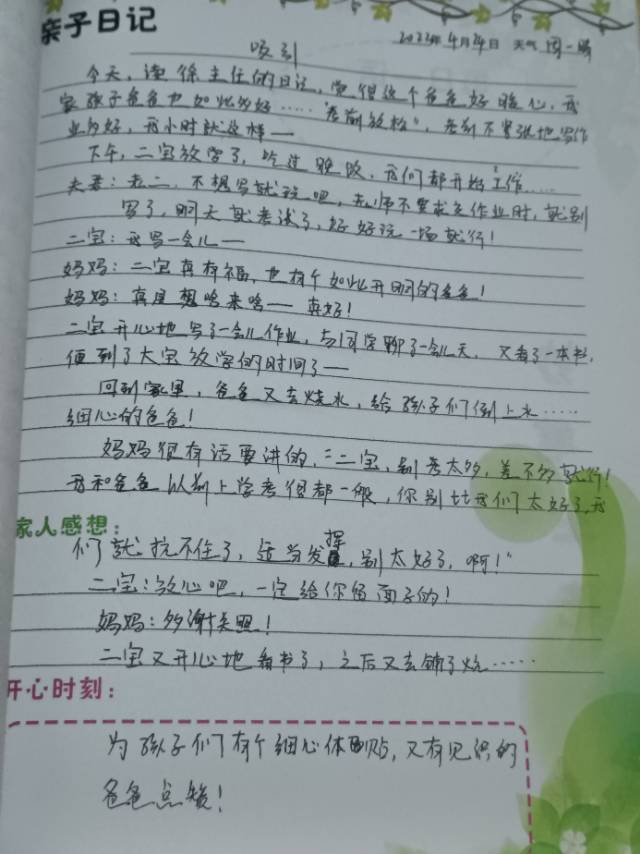 亲子日记
吸引 2023年4月24日 天气 周一 晴
今天,读徐主任的日记,觉得这个爸爸好暖心,我
家孩子爸爸也如此多好……"考前放松",考前不紧张地写作
业多好,我小时就这样——
下午,二宝放学了,吃过晚饭,我们都开始工作……
夫妻:老二,不想写就玩吧,老师不要求交作业时,就别
写了,明天就考试了,好好玩一场就行!
二宝:我写一会儿——
妈妈:二宝真有福,也有个如此开明的爸爸!
妈妈:真是想啥来啥——真好!
二宝开心地写了一会儿作业,与同学聊了一会儿天,又看了一本书,
便到了大宝放学的时间了——
回到家里,爸爸又去烧水,给孩子们倒上水……
细心的爸爸!
妈妈很有话要讲的,"二宝,别考太多,差不多就行!
我和爸爸以前上学考得都一般,你别比我们太好了,我
家人感想:
们就抗不住了,适当发挥,别太好了,啊!"
二宝:放心吧,一定给你留面子的!
妈妈:多谢关照!
二宝又开心地看书了,之后又去铺了炕……
开心时刻:
为孩子们有个细心体贴,又有见识的
爸爸点赞!